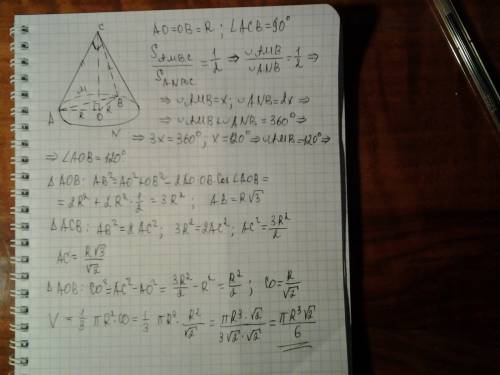 C
M
A R O R B
N
AO=OB=R ; ∠ACB=90°
S_AMBC / S_ANBC = 1/2 ⇒ ∪AMB / ∪ANB = 1/2 ⇒
⇒ ∪AMB=x; ∪ANB=2x ⇒
⇒ ∪AMB+∪ANB=360° ⇒
⇒ 3x=360°; x=120° ⇒ ∪AMB=120° ⇒
⇒ ∠AOB=120°
ΔAOB: AB²=AO²+OB²-2AO·OB Cos∠AOB=
=2R²+2R²·1/2=3R² ; AB=R√3
ΔACB: AB²=2AC²; 3R²=2AC²; AC²=3R²/2
AC=R√3/√2
ΔAOB: CO²=AC²-AO²=3R²/2-R²=R²/2 ; CO=R/√2
V=1/3 πR²CO=1/3 πR²·R/√2=πR³·√2/3√2·√2=πR³√2/6